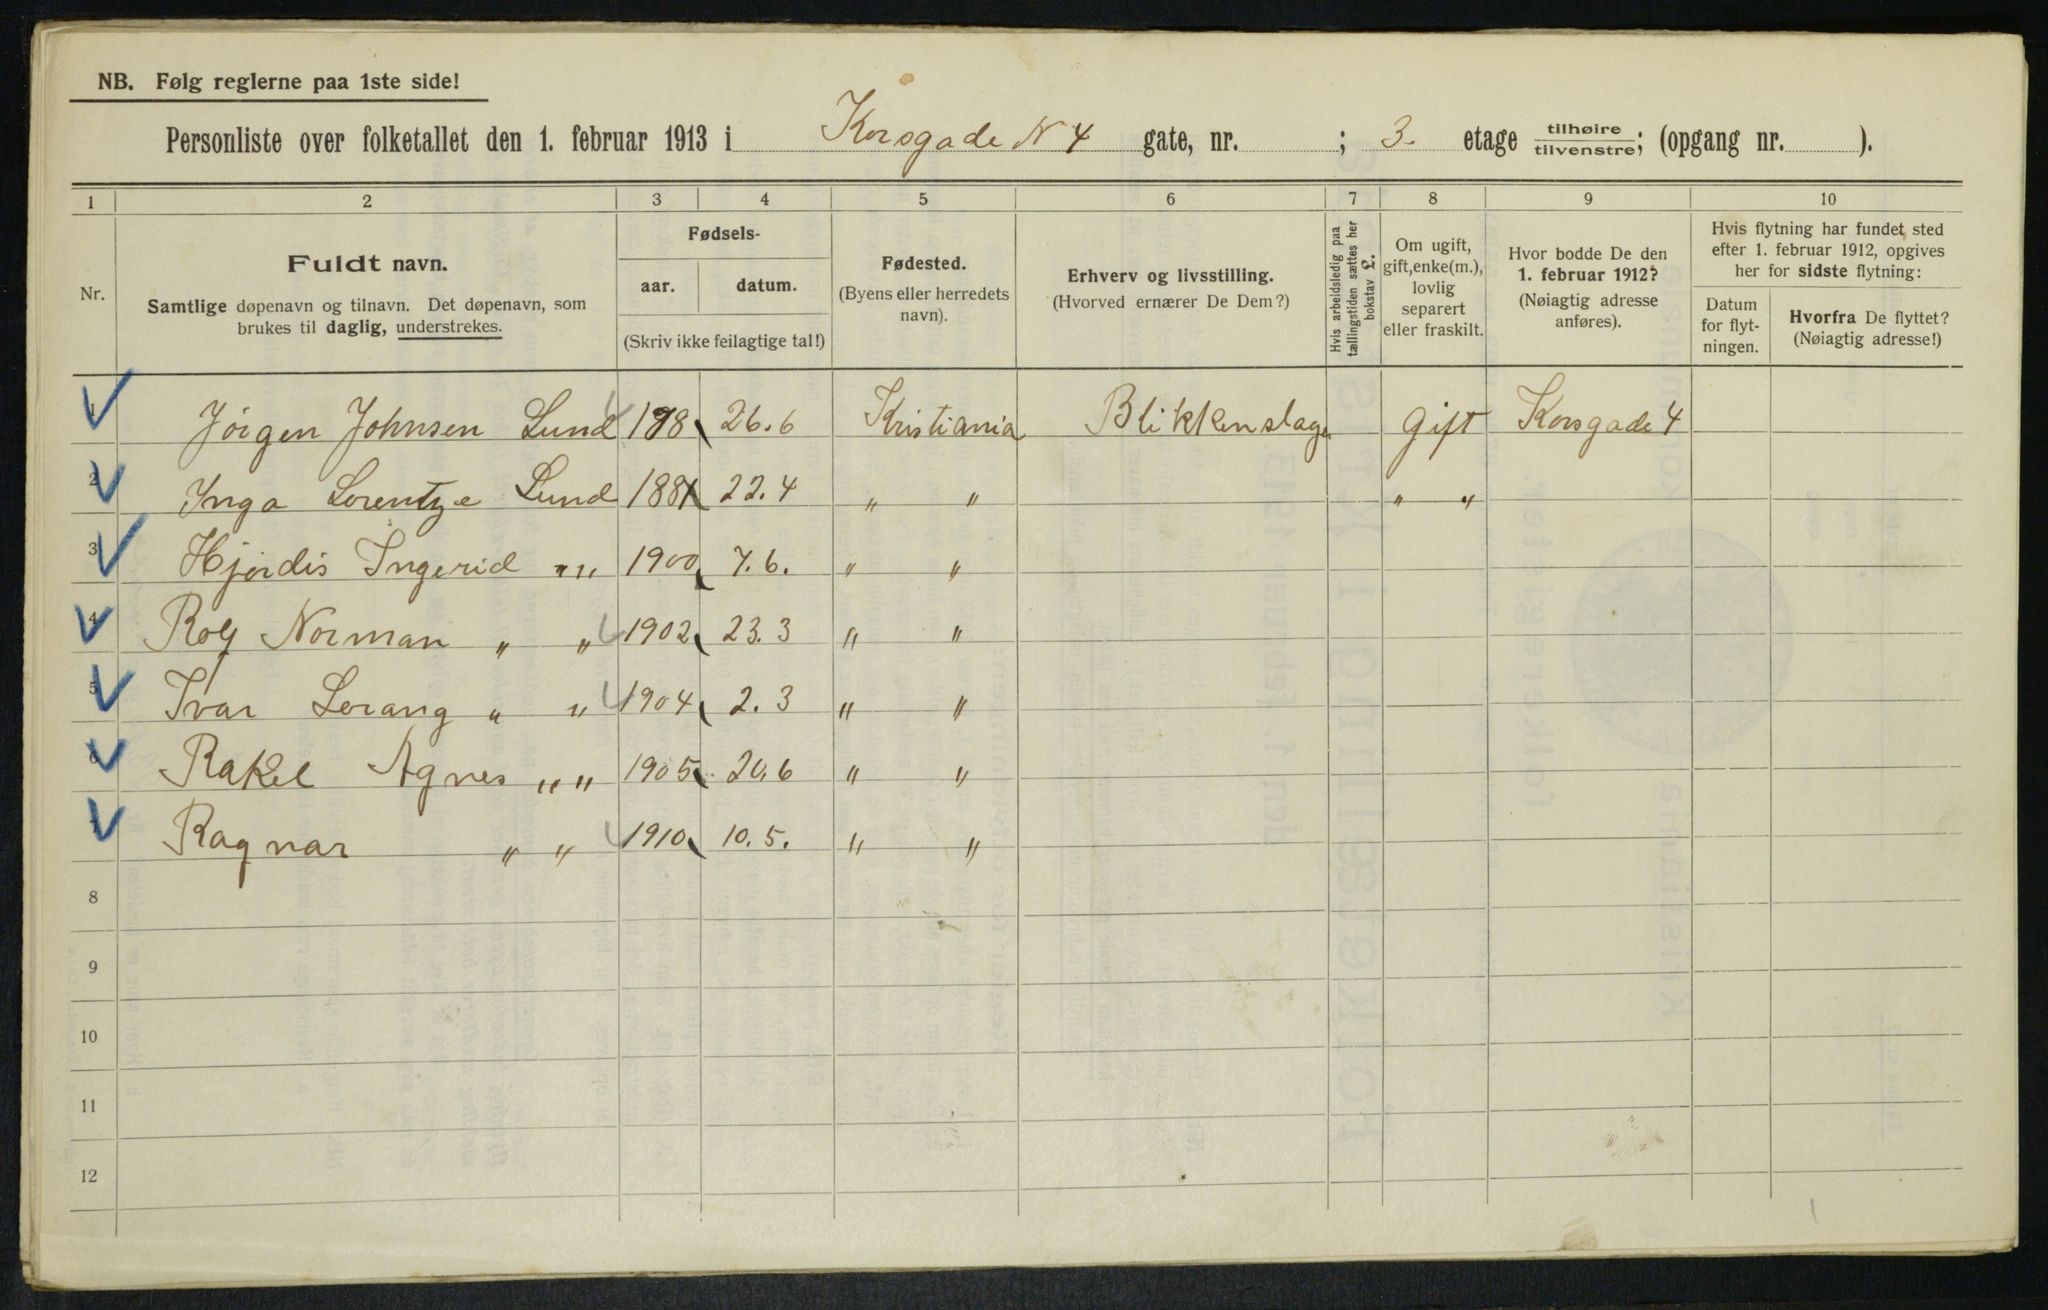 NB. Følg reglerne paa 1ste side!
Personliste over folketallet den 1. februar 1913 i Korsgade N 4 gate, nr. ; 3. etage tilhøire tilvenstre; (opgang nr. ).
1 2 3 4 5 6 7 8 9 10
Nr.
Fuldt navn.
Samtlige døpenavn og tilnavn. Det døpenavn, som
brukes til daglig, understrekes.
Fødsels-
aar. datum.
(Skriv ikke feilagtige tal!)
Fødested.
(Byens eller herredets
navn).
Erhverv og livsstilling.
(Hvorved ernærer De Dem?)
Hvis arbeidsledig paa
tællingstiden sættes her
bokstav L.
Om ugift,
gift, enke(m.),
lovlig
separert
eller fraskilt.
Hvor bodde De den
1. februar 1912?
(Nøiagtig adresse
anføres).
Hvis flytning har fundet sted
efter 1. februar 1912, opgives
her for sidste flytning:
Datum
for flyt-
ningen.
Hvorfra De flyttet?
(Nøiagtig adresse!)
1 Jörgen Johnsen Lund 26.6 Kristiania Blikkenslager Gift Korsgade 4
2 Inga Lorentze Lund 1881 22.4 " " " "
3 Hjördis Ingerid " " 1900 7.6. " "
4 Rolf Norman " " 1902 23.3 " "
5 Ivar Lorang " " 1904 2.3 " "
6 Rakel Agnes " " 1905 20.6 " "
7 Ragnar " " 1910 10.5. " "
8
9
10
11
12